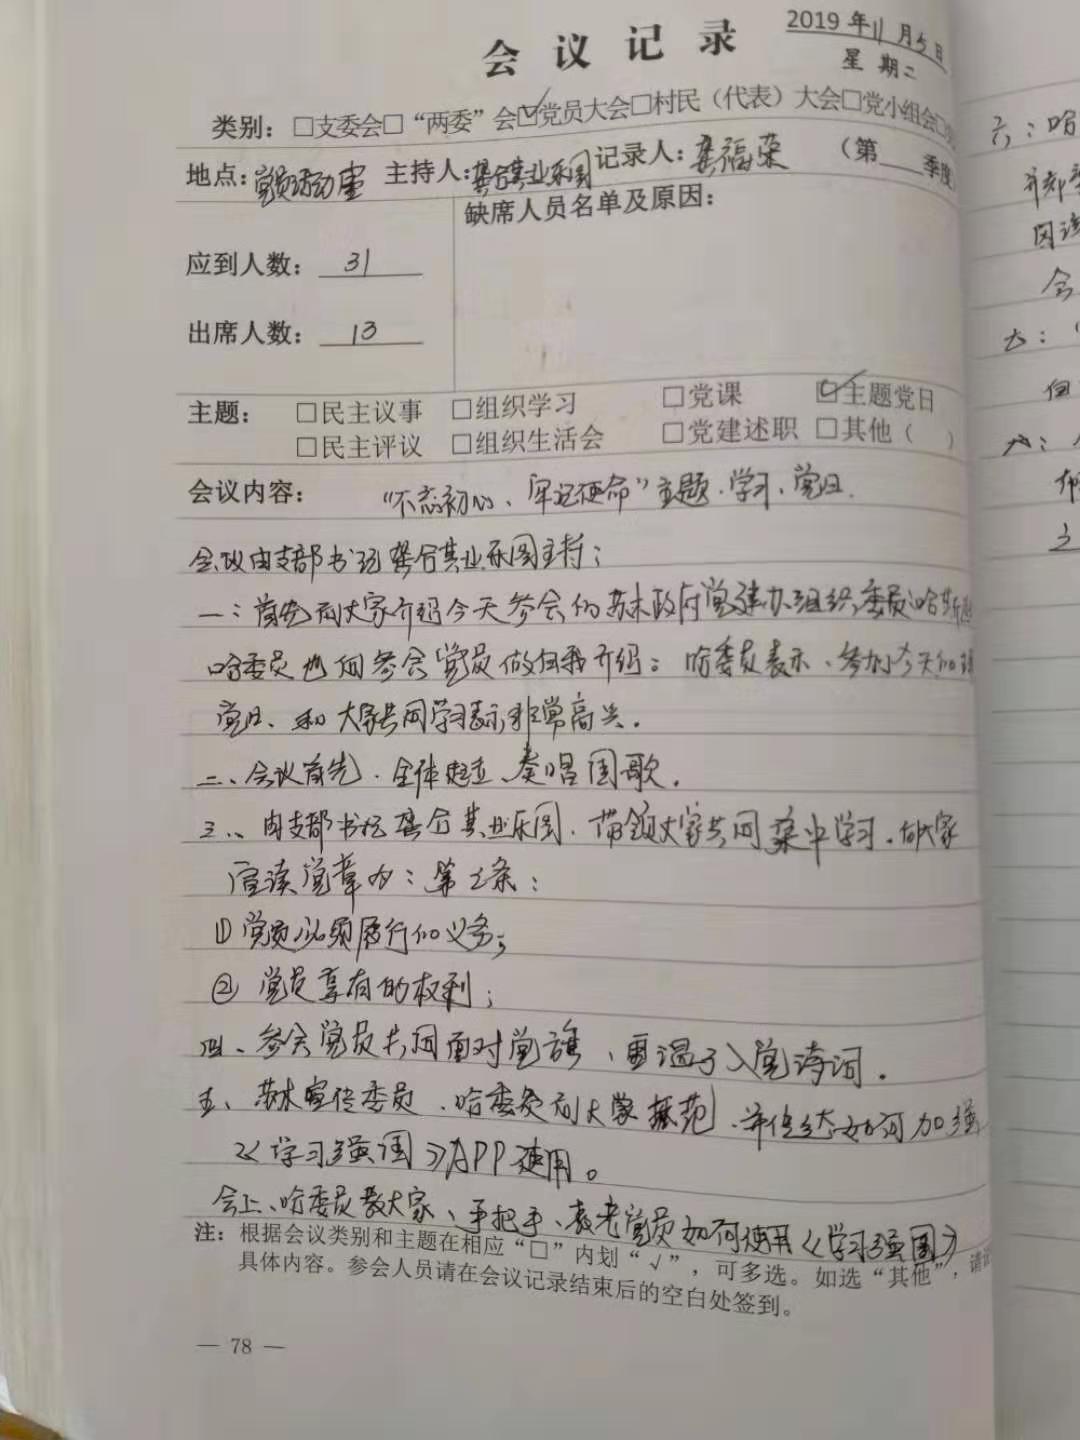 2019年11月5日
会议记录
星期二
类别：□支委会□“两委”会☑党员大会□村民（代表）大会□党小组会□
地点：党员活动室 主持人： 记录人：龚福荣 （第 季度
缺席人员名单及原因：
应到人数：31
出席人数：13
主题： □民主议事 □组织学习 □党课 ☑主题党日
□民主评议 □组织生活会 □党建述职 □其他（ ）
会议内容： “不忘初心、牢记使命”主题.学习、党日.
会议由支部书记 主持；
一：首先向大家介绍今天参会的苏木政府党建办组织委员哈斯
哈委员也向参会党员做自我介绍：哈委员表示、参加今天的
党日、和大家共同学习表示非常高兴.
二、会议首先.全体起立、奏唱国歌.
三、由支部书记 .带领大家共同集中学习.向大家
宣读党章为：第 条：
①党员必须履行的义务；
②党员享有的权利；
四、参会党员共同面对党旗、重温了入党誓词.
五、苏木宣传委员.哈委员向大家 、并传达如何加强
《学习强国》APP使用。
会上、哈委员教大家、手把手、教老党员如何使用《学习强国》
注：根据会议类别和主题在相应“□”内划“√”，可多选。如选“其他”，请
具体内容。参会人员请在会议记录结束后的空白处签到。
— 78 —
六：哈